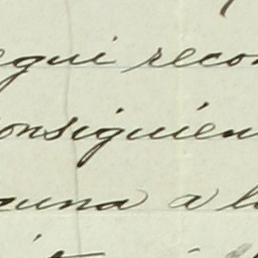 egui recon
onsiguien
guna a l